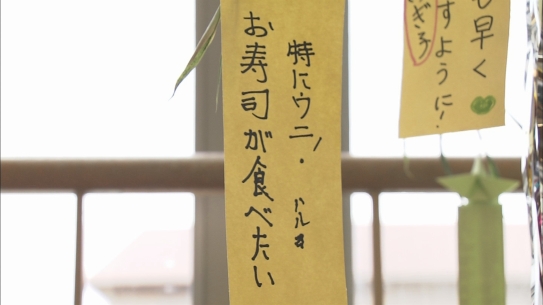 お寿司が食べたい
特にウニ！
も早く
すように！
ぎ子